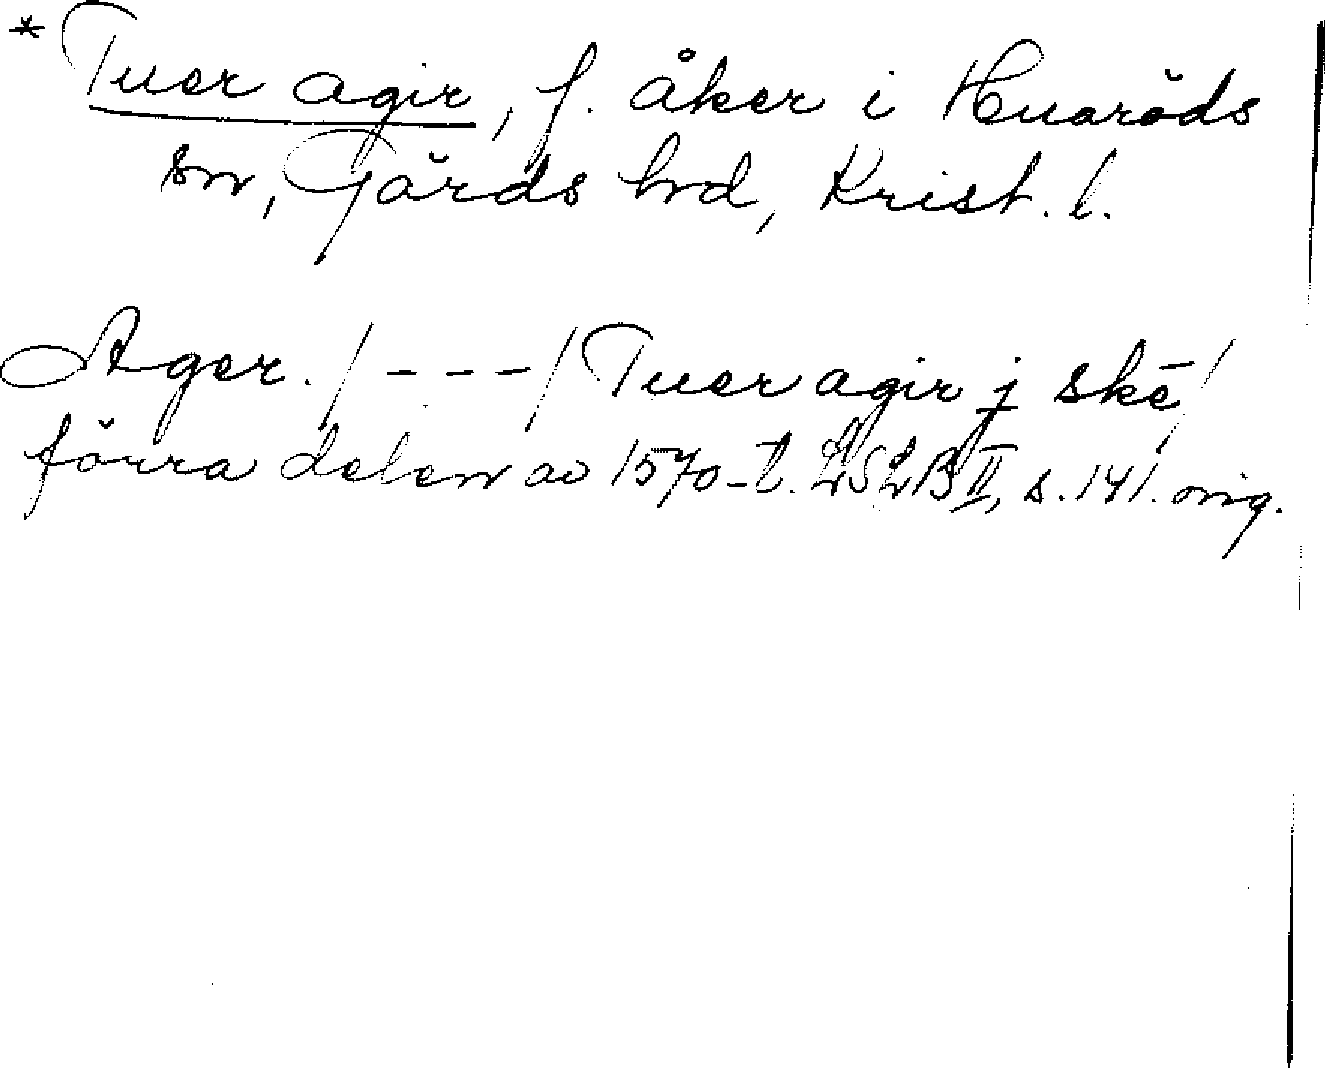 * Tuer agir, f. åker i Huaröds
sn, Gärds hd, Krist. l.
Ager. / - - - / Tuer agir j skē /
förra delen av 1570-t. LSLB II, s. 141. orig.